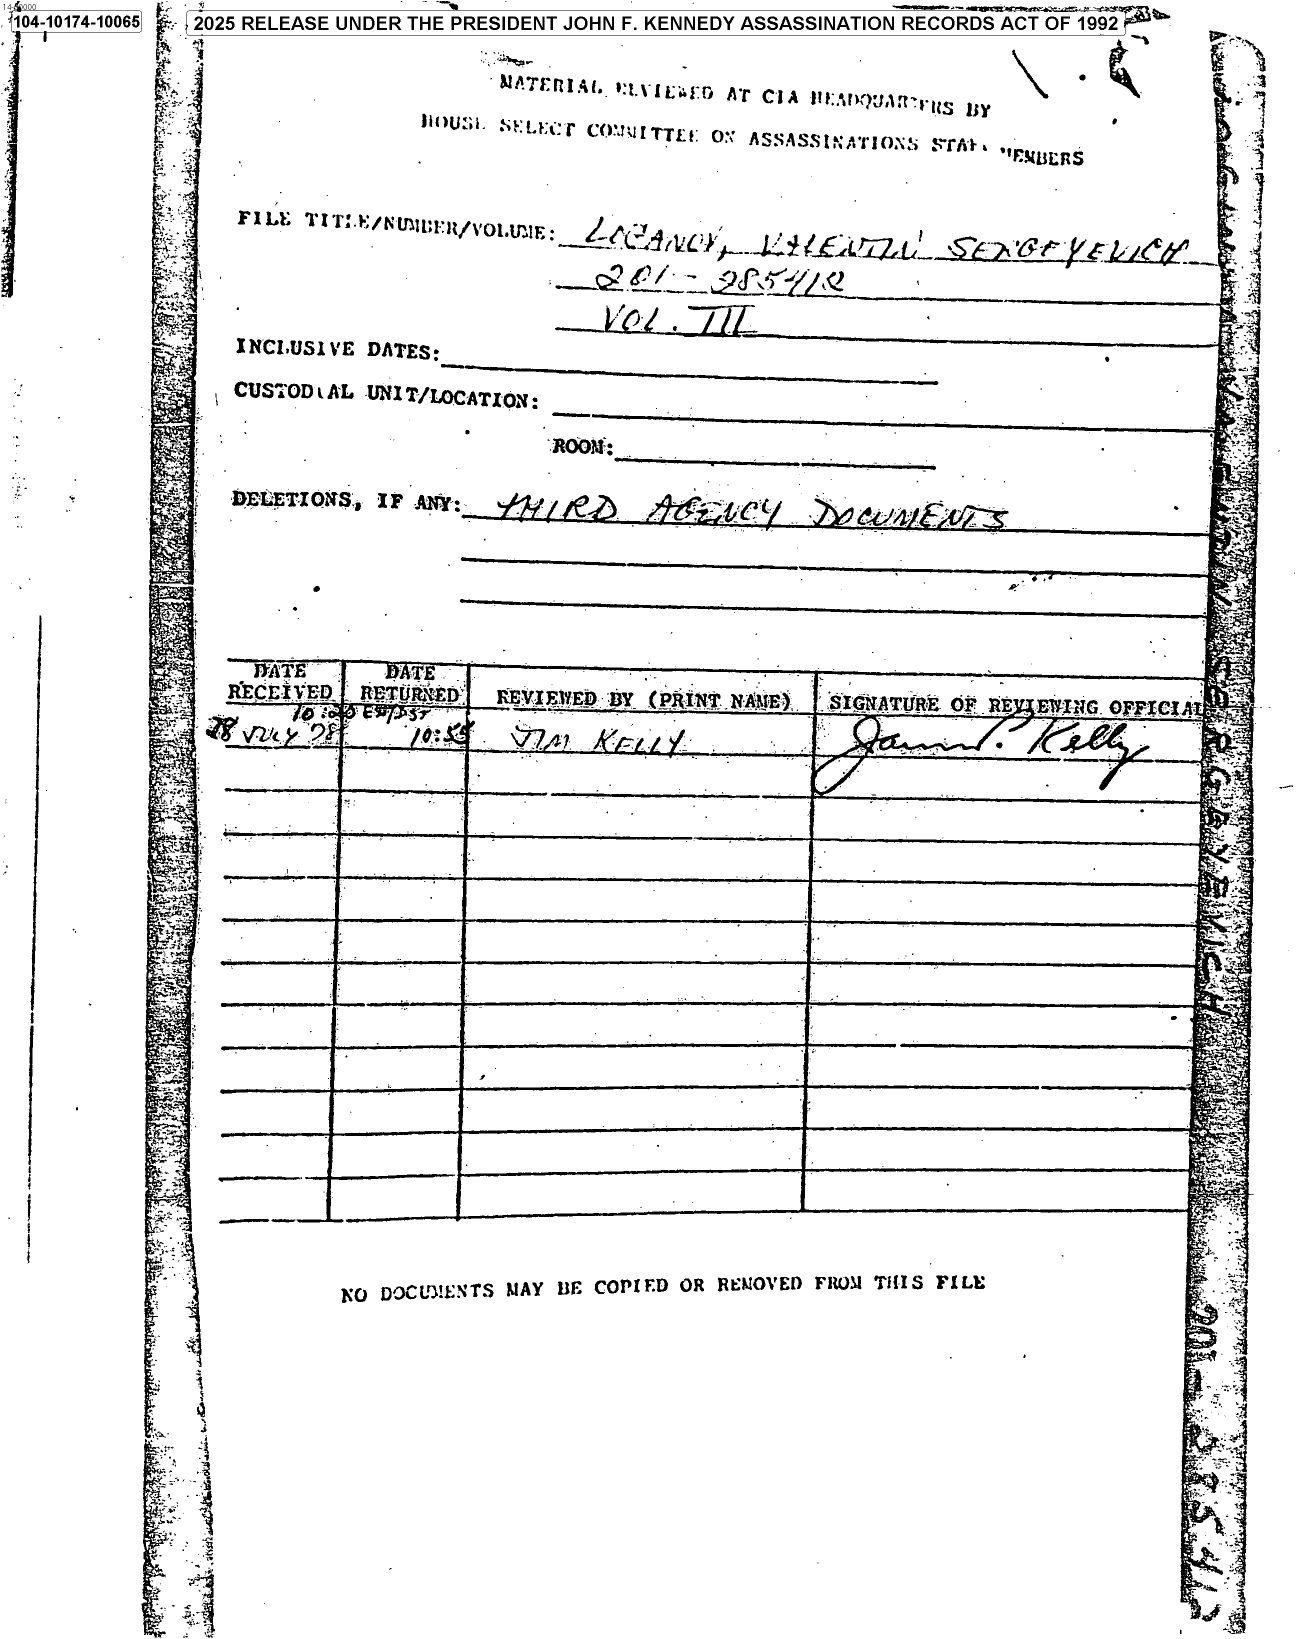 14-00000
104-10174-10065
2025 RELEASE UNDER THE PRESIDENT JOHN F. KENNEDY ASSASSINATION RECORDS ACT OF 1992
MATERIAL REVIEWED AT CIA HEADQUARTERS BY
HOUSE SELECT COMMITTEE ON ASSASSINATIONS STAFF MEMBERS
FILE TITLE/NUMBER/VOLUME: VALENTIN SERGEYEVICH
201-285412
VOL. III
INCLUSIVE DATES:
CUSTODIAL UNIT/LOCATION:
ROOM:
DELETIONS, IF ANY: THIRD AGENCY DOCUMENTS
DATE RECEIVED
DATE RETURNED
REVIEWED BY (PRINT NAME)
SIGNATURE OF REVIEWING OFFICIAL
10:20
28 JULY 78
10:55
JIM KELLY
James P. Kelly
NO DOCUMENTS MAY BE COPIED OR REMOVED FROM THIS FILE
VALENTIN SERGEYEVICH
201-285412